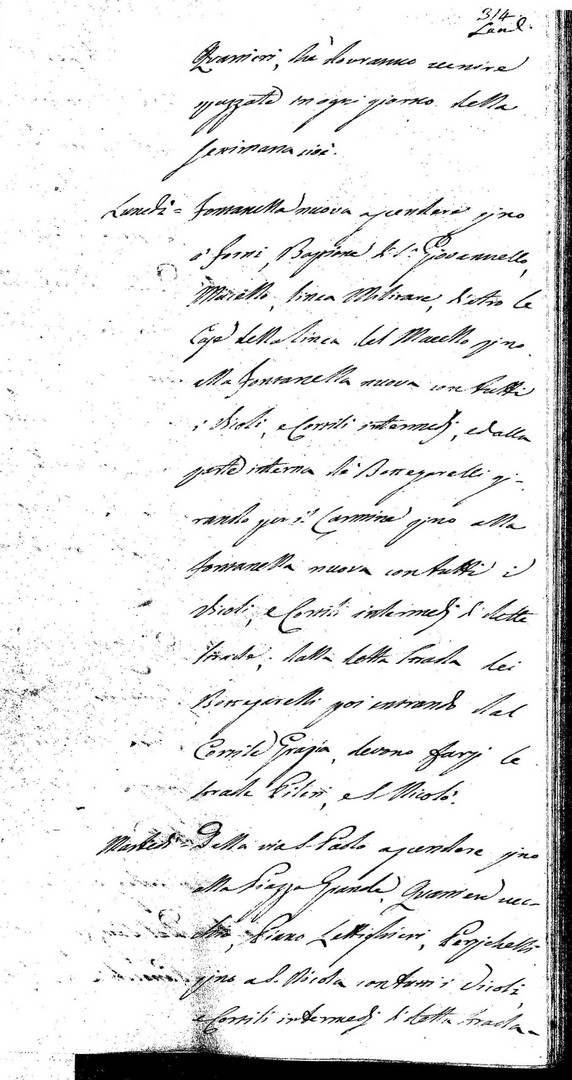 314.
Quartieri, che dovranno venire
spazzate in ogni giorno della
settimana cioè.
Lunedì = Fontanella nuova a scendere sino
a Forni, Bastione di S. Giovannello,
Macello, linea Militare, dietro le
Case della linea del Macello sino
alla Fontanella nuova con tutti
i Vicoli, e Cortili intermedj, e dalla
parte interna de Bottegarelli gi-
rando per il Carmine sino alla
Fontanella nuova con tutti i
Vicoli, e Cortili intermedj di dette
strade; dalla detta strada dei
Bottegarelli poi entrando dal
Cortile Grazia, devono farsi le
strade Pileri, e S. Nicolò.
Martedì = Dalla via S. Paolo a scendere sino
alla Piazza Grande, Quartieri vec-
chi, Piano Lettighieri,
sino a S. Nicola con tutti i Vicoli
e Cortili intermedj di detta strada =